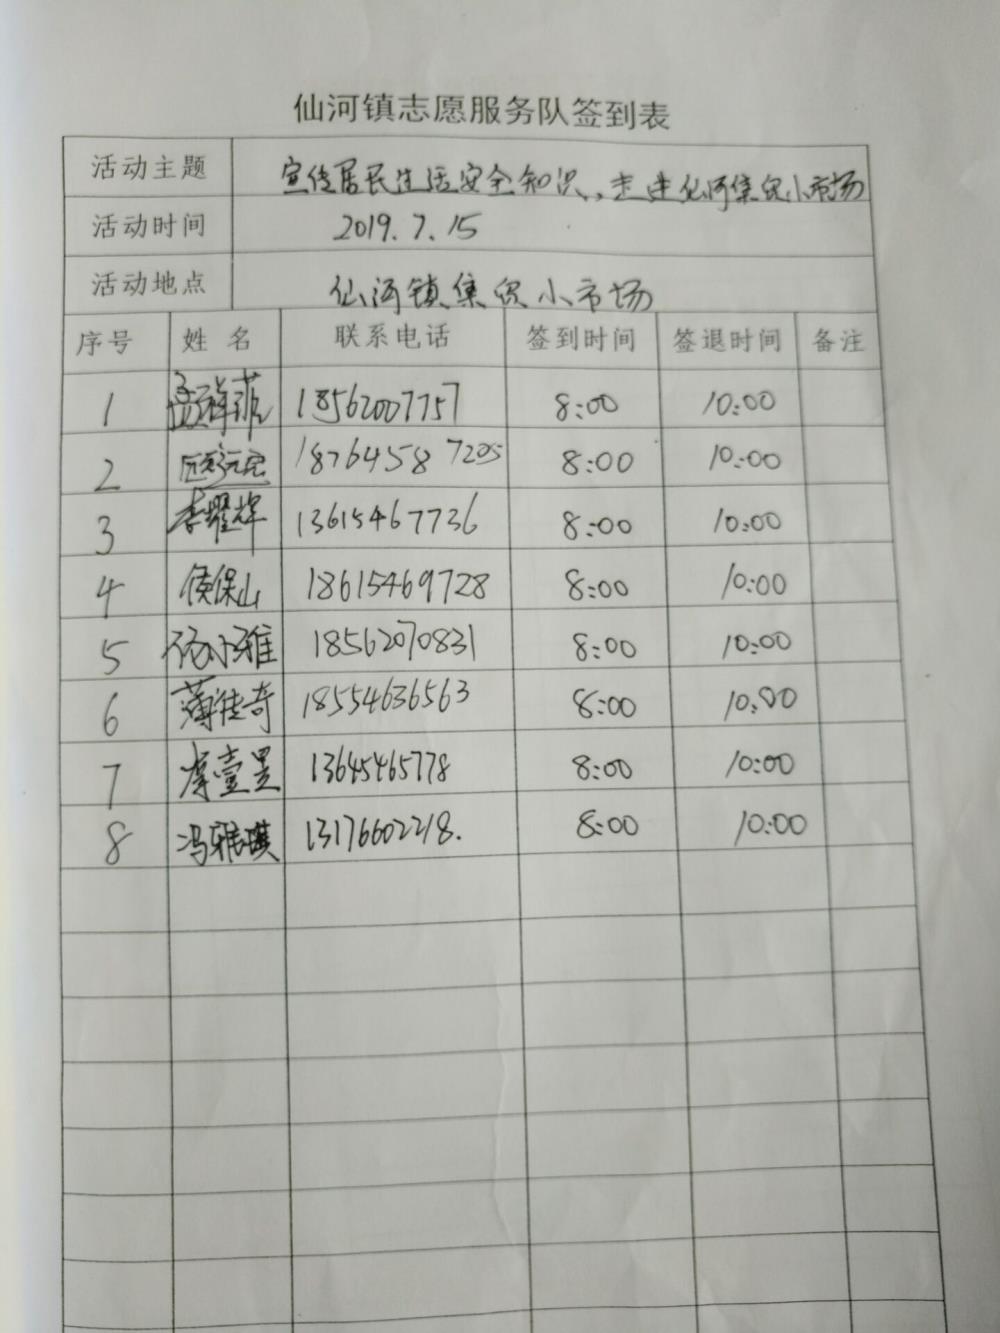 仙河镇志愿服务队签到表
活动主题 宣传居民生活安全知识、走进仙河集贸小市场
活动时间 2019.7.15
活动地点 仙河镇集贸小市场
序号 姓名 联系电话 签到时间 签退时间 备注
1 18562007757 8:00 10:00
2 18764587205 8:00 10:00
3 李耀辉 13615467736 8:00 10:00
4 侯保山 18615469728 8:00 10:00
5 杨小雅 18562070831 8:00 10:00
6 薄佳奇 18554636563 8:00 10:00
7 13645465778 8:00 10:00
8 冯雅琪 13176602218. 8:00 10:00